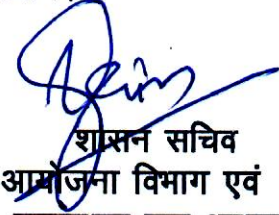 शासन सचिव
आयोजना विभाग एवं